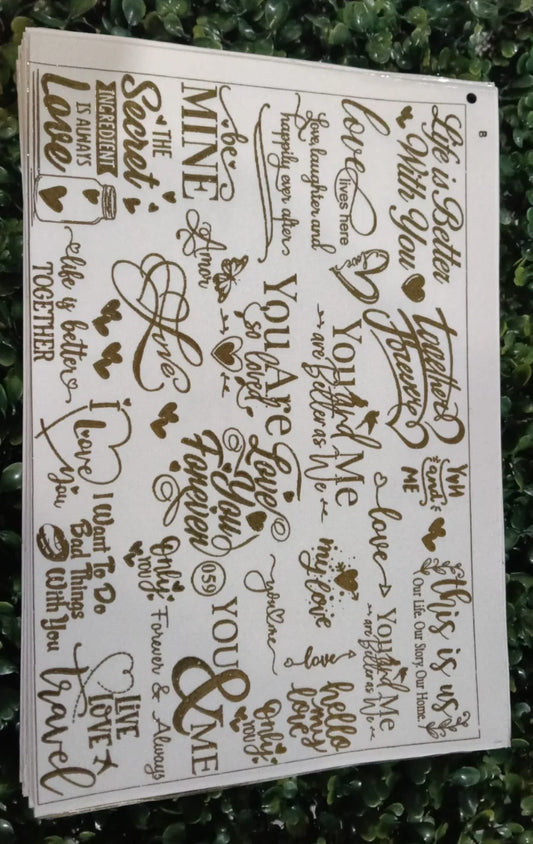 B
Life is Better
With You
together
Forever
You
and
ME
this is us
Our Life. Our Story. Our Home.
love
lives here
You And Me
are Better as We
love
You And Me
are Better as We
Love, laughter and
happily ever after
You Are
so loved
my love
hello
my
love
be
MINE
Amor
Love
You
Forever
you
me
love
Only
YOU
THE
Secret
INGREDIENT
IS ALWAYS
Love
Love
059
YOU
&
ME
Only
YOU
Forever & Always
life is better
TOGETHER
I
Love
You
I Want To Do
Bad Things
With You
LIVE
LOVE
travel